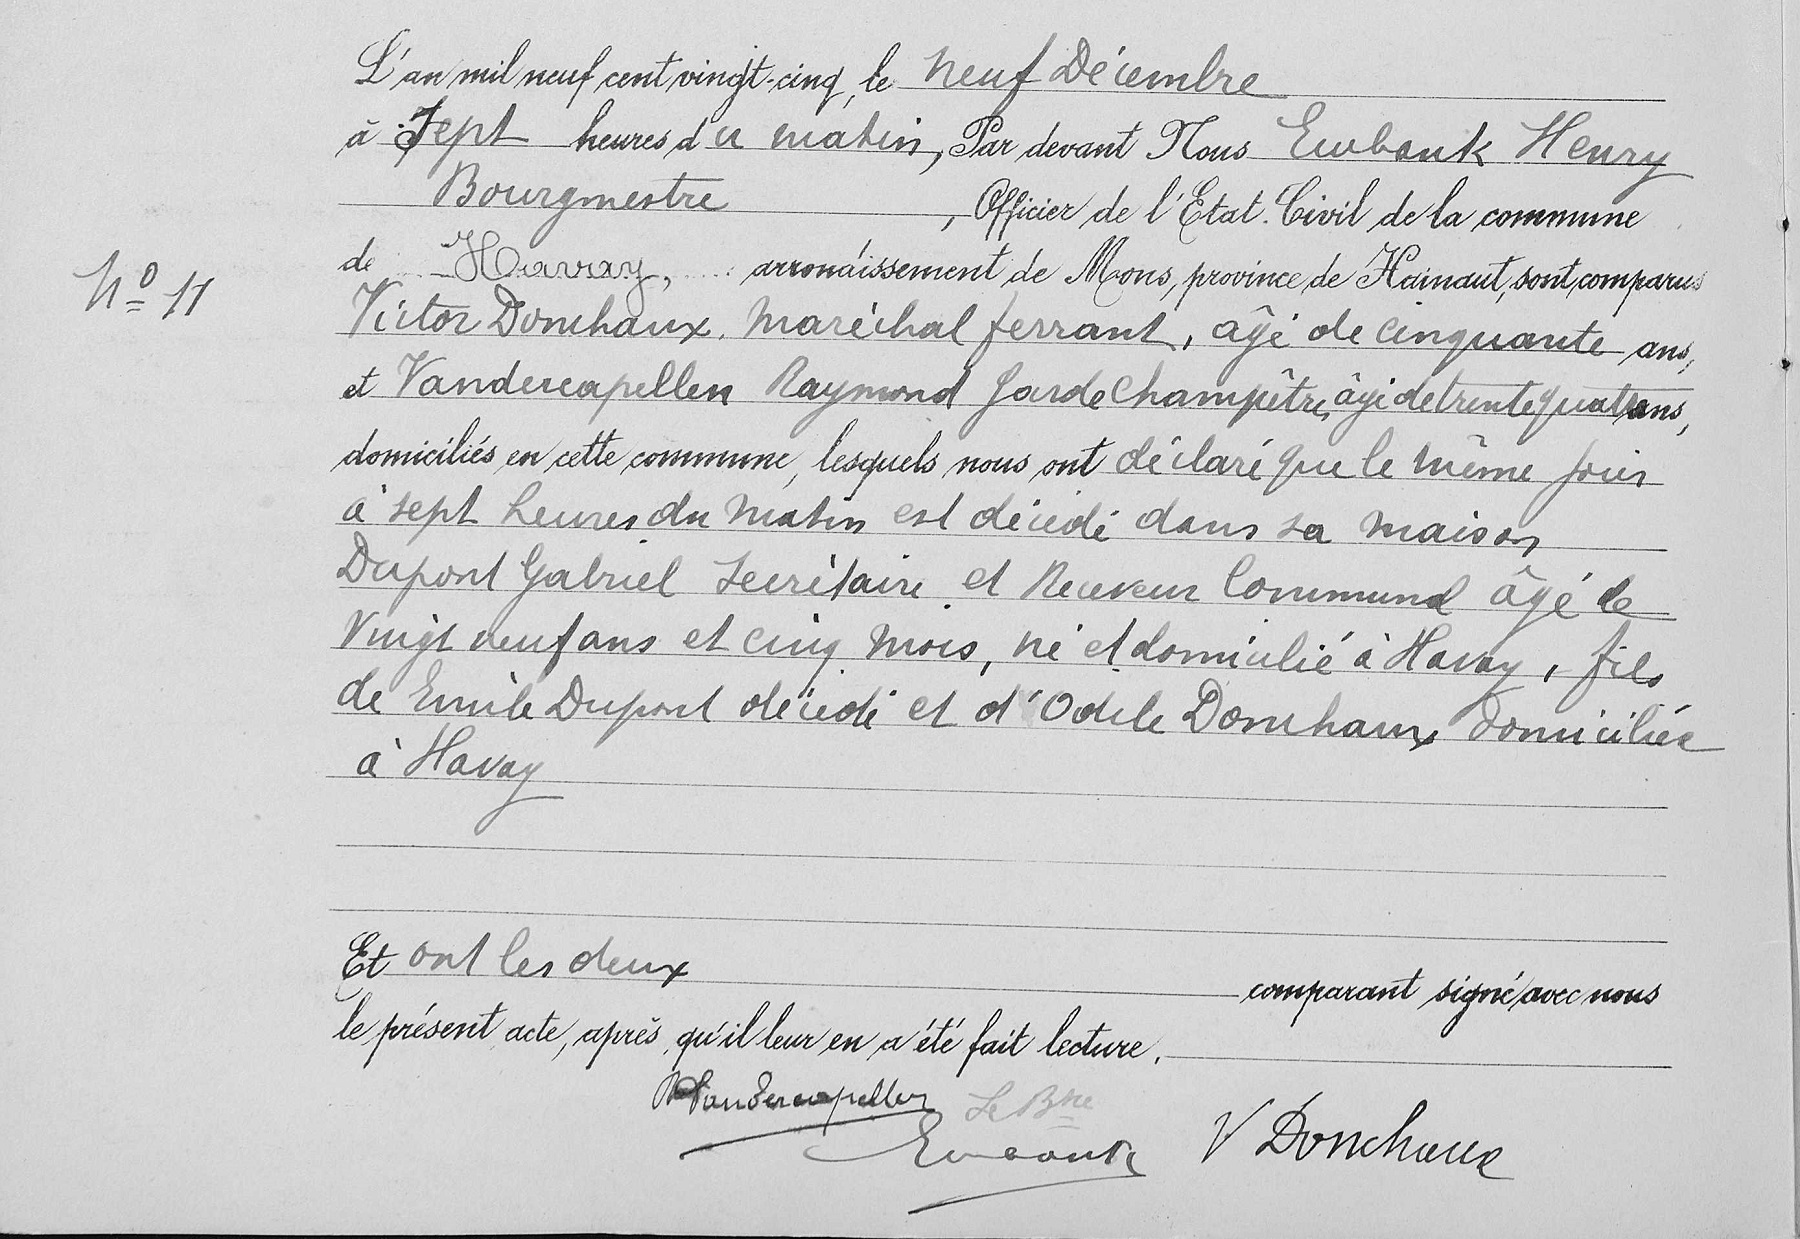 L'an mil neuf cent vingt-cinq, le neuf Décembre
à Sept heures du matin, Par devant Nous Ewbank Henry
Bourgmestre, Officier de l'Etat-Civil de la commune
de Havay, arrondissement de Mons, province de Hainaut, sont comparus
N° 11
Victor Donchaux, Maréchal ferrant, âgé de cinquante ans,
et Vandercapellen Raymond Garde Champêtre, âgé de trente quatre ans,
domiciliés en cette commune, lesquels nous ont déclaré que le même jour
à sept heures du matin est décédé dans sa maison
Dupont Gabriel Secrétaire et Receveur Communal âgé de
vingt neuf ans et cinq mois, né et domicilié à Havay, fils
de Emile Dupont décédé et d'Odile Donchaux domiciliée
à Havay
Et ont les deux comparant signé avec nous
le présent acte, après qu'il leur en a été fait lecture.
R Vandercapellen Le Bre
Ewbank V Donchaux